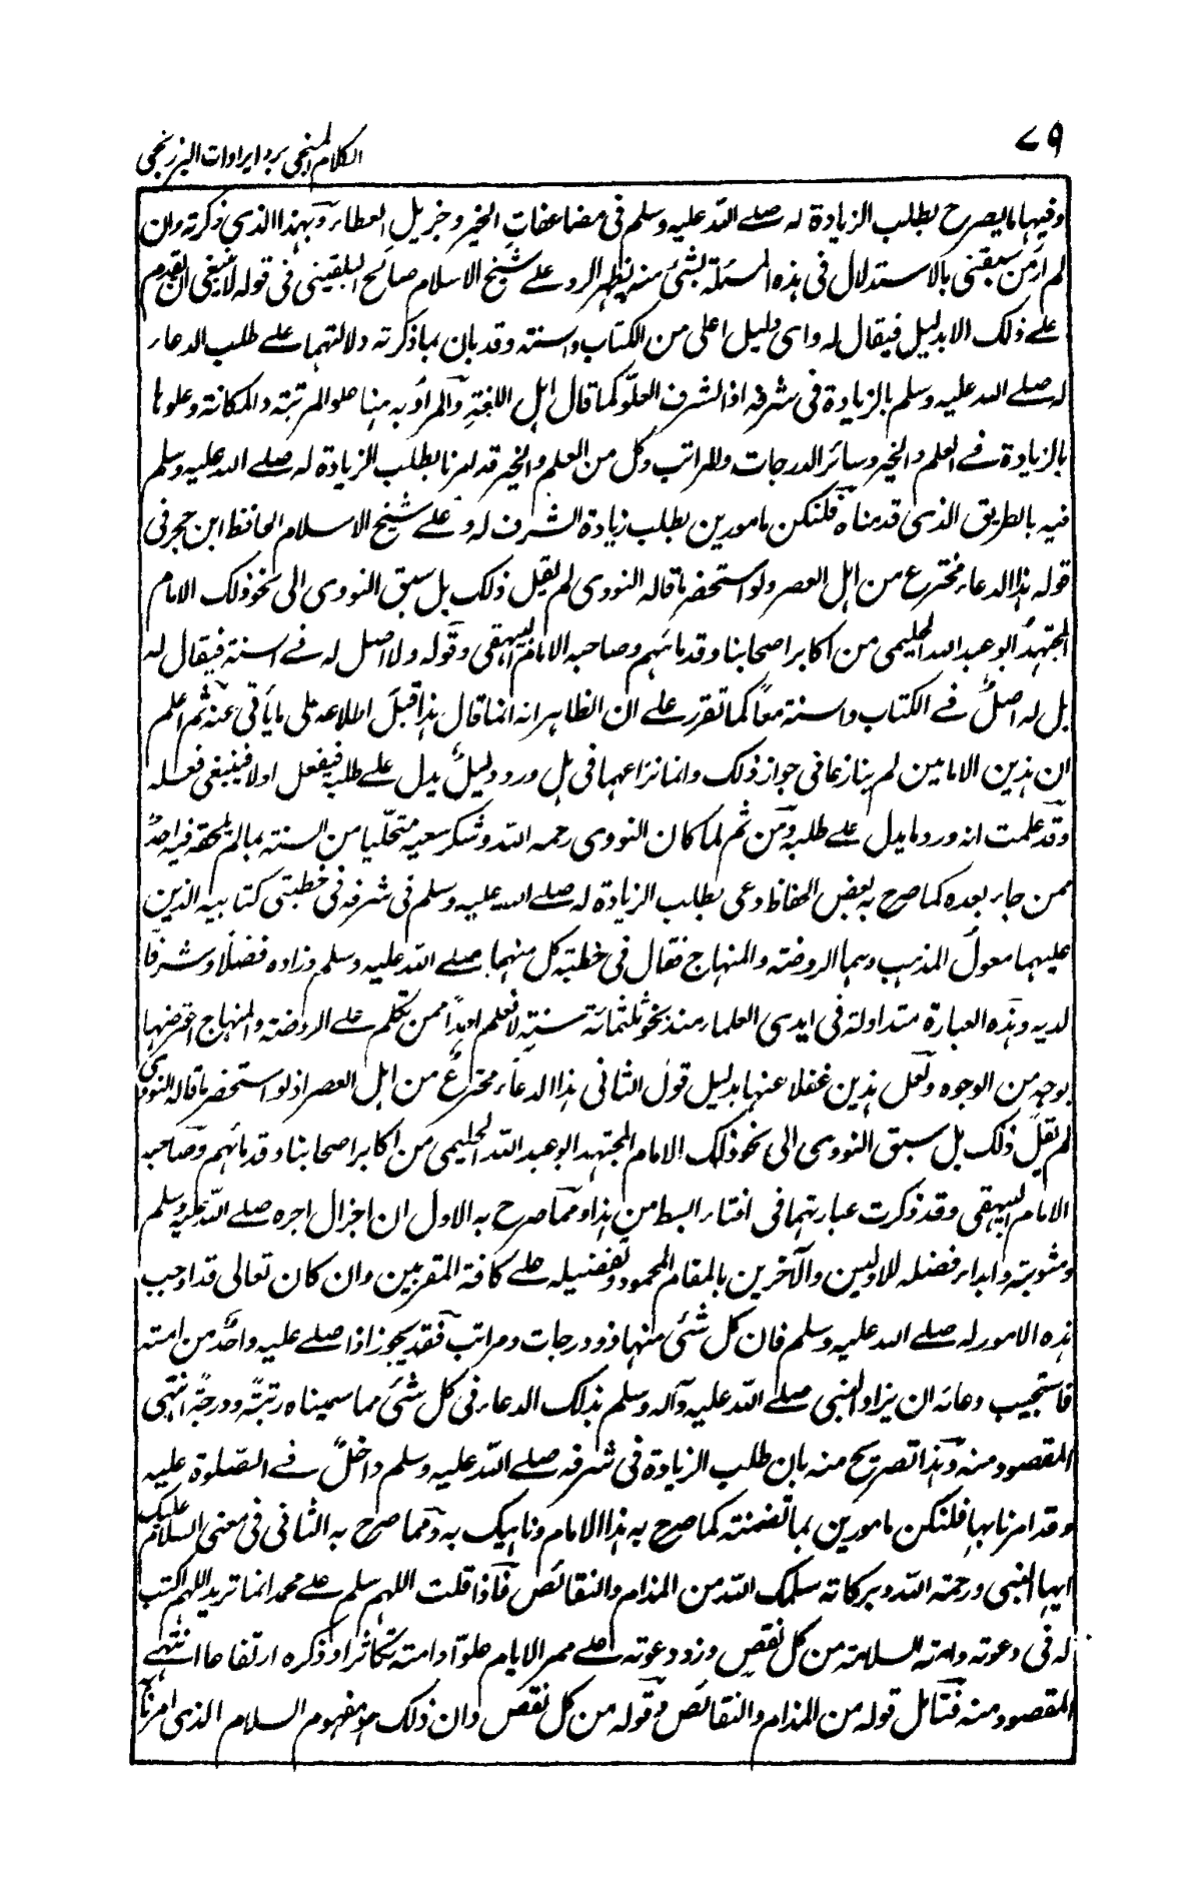 ٧٩
الكلام المنجى برد ايرادات البرزنجى
وفيهما ما يصرح بطلب الزيادة له صلے الله عليه وسلم فى مضاعفات الخير وجزيل العطاء وبهذا الذى ذكرته وان
لم ار من سبقنى بالاستدلال فى هذه المسئلة بشئ منه يظهر الرد علے شيخ الاسلام صالح البلقينى فى قوله لا ينبغى ان يقدم
علے ذلك الا بدليل فيقال له واى دليل اعلى من الكتاب والسنة وقد بان بما ذكرته دلالتهما علے طلب الدعاء
له صلے الله عليه وسلم بالزيادة فى شرفه اذ الشرف العلو كما قال اهل اللغة والمراد به هنا علو المرتبة والمكانة وعلوها
بالزيادة فے العلم والخير وسائر الدرجات والمراتب وكل من العلم والخير قد امرنا بطلب الزيادة له صلے الله عليه وسلم
فيه بالطريق الذى قدمناه فلنكن مامورين بطلب زيادة الشرف له و علے شيخ الاسلام الحافظ ابن حجر فى
قوله هذا الدعاء مخترع من اهل العصر ولو استحضر ما قاله النووى لم يقل ذلك بل سبق النووى الى نحو ذلك الامام
المجتهد ابو عبد الله الحليمى من اكابر اصحابنا وقدمائهم وصاحبه الامام البيهقى وقوله ولا اصل له فے السنة فيقال له
بل له اصلٌ فے الكتاب والسنة معًا كما تقرر علے ان الظاهر انه انما قال هذا قبل اطلاعه على ما ياتى عنه ثم اعلم
ان هذين الامامين لم ينازعا فى جواز ذلك وانما نزاعهما فى هل ورد دليلٌ يدل علے طلبه فيفعل اولا فينبغى فعله
وقد علمت انه ورد ما يدل علے طلبه ومن ثم لما كان النووى رحمه الله وشكر سعيه متحليا من السنة بما لم يلحقه فيه احدٌ
ممن جاء بعده كما صرح به بعض الحفاظ دعى بطلب الزيادة له صلے الله عليه وسلم فى شرفه فى خطبتى كتابيه الذين
عليهما معول المذهب وهما الروضة والمنهاج فقال فى خطبة كل منهما صلے الله عليه وسلم وزاده فضلًا وشرفًا
لديه وهذه العبارة متداولة فى ايدى العلماء منذ نحو ثلثمائة سنة لا نعلم احدًا ممن تكلم علے الروضة والمنهاج اعترضها
بوجه من الوجوه ولعل هذين غفلا عنها بدليل قول الثانى هذا الدعاء مخترعٌ من اهل العصر اذ لو استحضر ما قاله النووى
لم يقل ذلك بل سبق النووى الى نحو ذلك الامام المجتهد ابو عبد الله الحليمى من اكابر اصحابنا وقدمائهم وصاحبه
الامام البيهقى وقد ذكرت عبارتهما فى افتاء ابسط من هذا ومما صرح به الاول ان اجزال اجره صلے الله عليه وسلم
ومثوبته وابداء فضله للاولين والآخرين بالمقام المحمود وتفضيله علے كافة المقربين وان كان تعالى قد اوجب
هذه الامور له صلے الله عليه وسلم فان كل شئ منها ذو درجات ومراتب فقد يجوز اذا صلے عليه واحدٌ من امته
فاستجيب دعائه ان يزاد النبى صلے الله عليه وآله وسلم بذلك الدعاء فى كل شئ مما سميناه رتبةً ودرجةً انتهى
المقصود منه وهذا تصريح منه بان طلب الزيادة فى شرفه صلے الله عليه وسلم داخلٌ فے الصلوة عليه
وقد امرنا بها فلنكن مامورين بما تضمنته كما صرح به هذا الامام وناهيك به ومما صرح به الثانى فى معنى السلام عليك
ايها النبى ورحمة الله وبركاته سلمك الله من المذام والنقائص فاذا قلت اللهم سلم علے محمد انما تريد اللهم اكتب
له فى دعوته وامته السلامة من كل نقص وزد دعوته علے ممر الايام علوّا وامته تكاثرا وذكره ارتفاعا انتهے
المقصود منه فتأمل قوله من المذام والنقائص وقوله من كل نقص وان ذلك هو مفهوم السلام الذى امرنا به